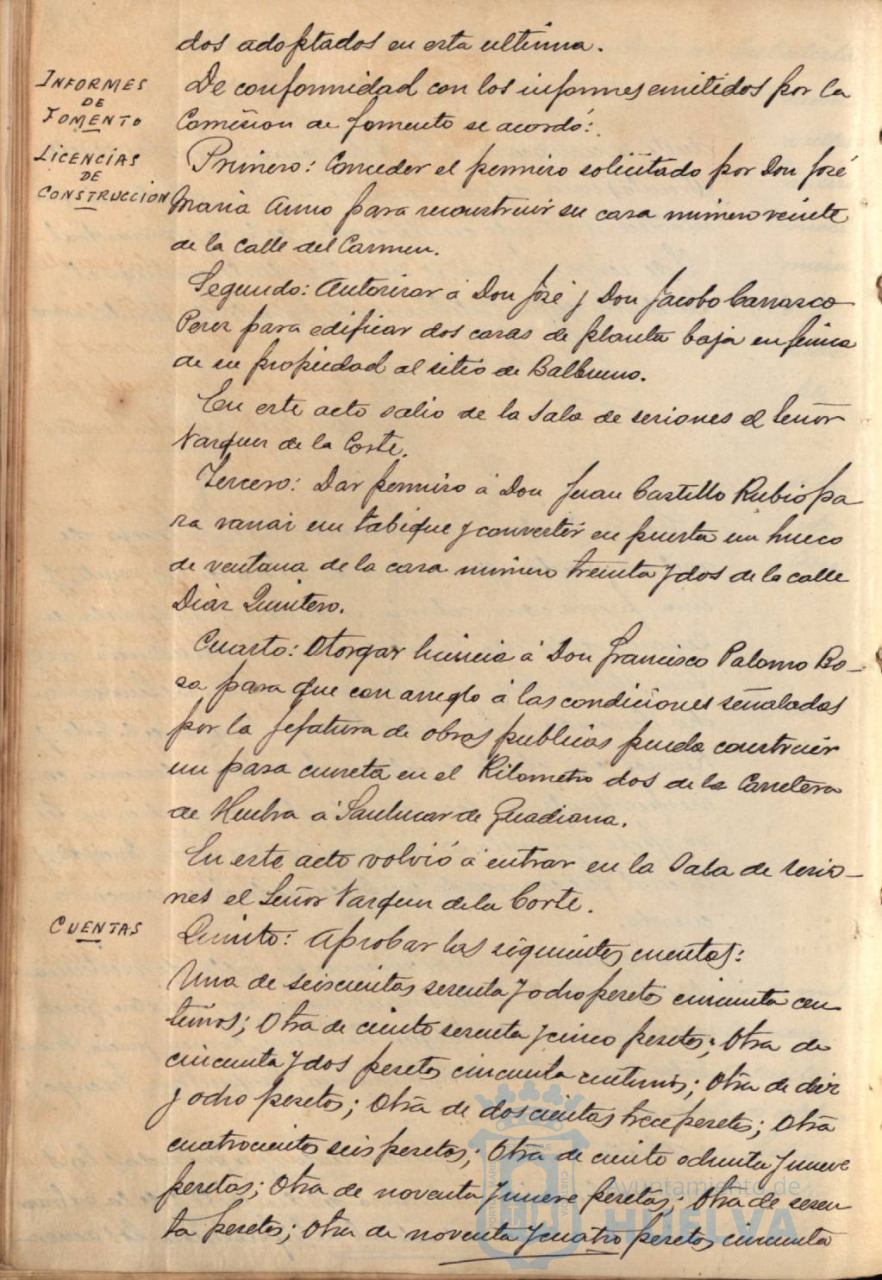 dos adoptados en esta ultima.
INFORMES
DE
FOMENTO
De conformidad con los informes emitidos por la
Comision de fomento se acordó:
LICENCIAS
DE
CONSTRUCCION
Primero: Conceder el permiso solicitado por Don José
Maria para reconstruir su casa numero veinte
de la calle del Carmen.
Segundo: Autorizar á Don José y Don Jacobo Carrasco
Perez para edificar dos casas de planta baja en finca
de su propiedad al sitio de Balbueno.
En este acto salio de la Sala de sesiones el Señor
Vazquez de la Corte.
Tercero: Dar permiso á Don Juan Castillo Rubio pa
ra un tabique y convertir en puerta un hueco
de ventana de la casa numero treinta y dos de la calle
Diaz Quintero.
Cuarto: Otorgar licencia á Don Francisco Palomo Ro-
sa para que con arreglo á las condiciones señaladas
por la Jefatura de obras publicas pueda construir
un pasa cuneta en el Kilometro dos de la Carretera
de Huelva á Sanlucar de Guadiana.
En este acto volvió á entrar en la Sala de sesio-
nes el Señor Vazquez de la Corte.
CUENTAS
Quinto: Aprobar las siguientes cuentas:
Una de seiscientas sesenta y ocho pesetas cincuenta cen
timos; Otra de ciento sesenta y cinco pesetas; Otra de
cincuenta y dos pesetas cincuenta centimos; Otra de diez
y ocho pesetas; Otra de doscientas trece pesetas; Otra
cuatrocientos seis pesetas; Otra de ciento ochenta y nueve
pesetas; Otra de noventa y nueve pesetas; Otra de sesen
ta pesetas; Otra de noventa y cuatro pesetas cincuenta
Ayuntamiento de
HUELVA